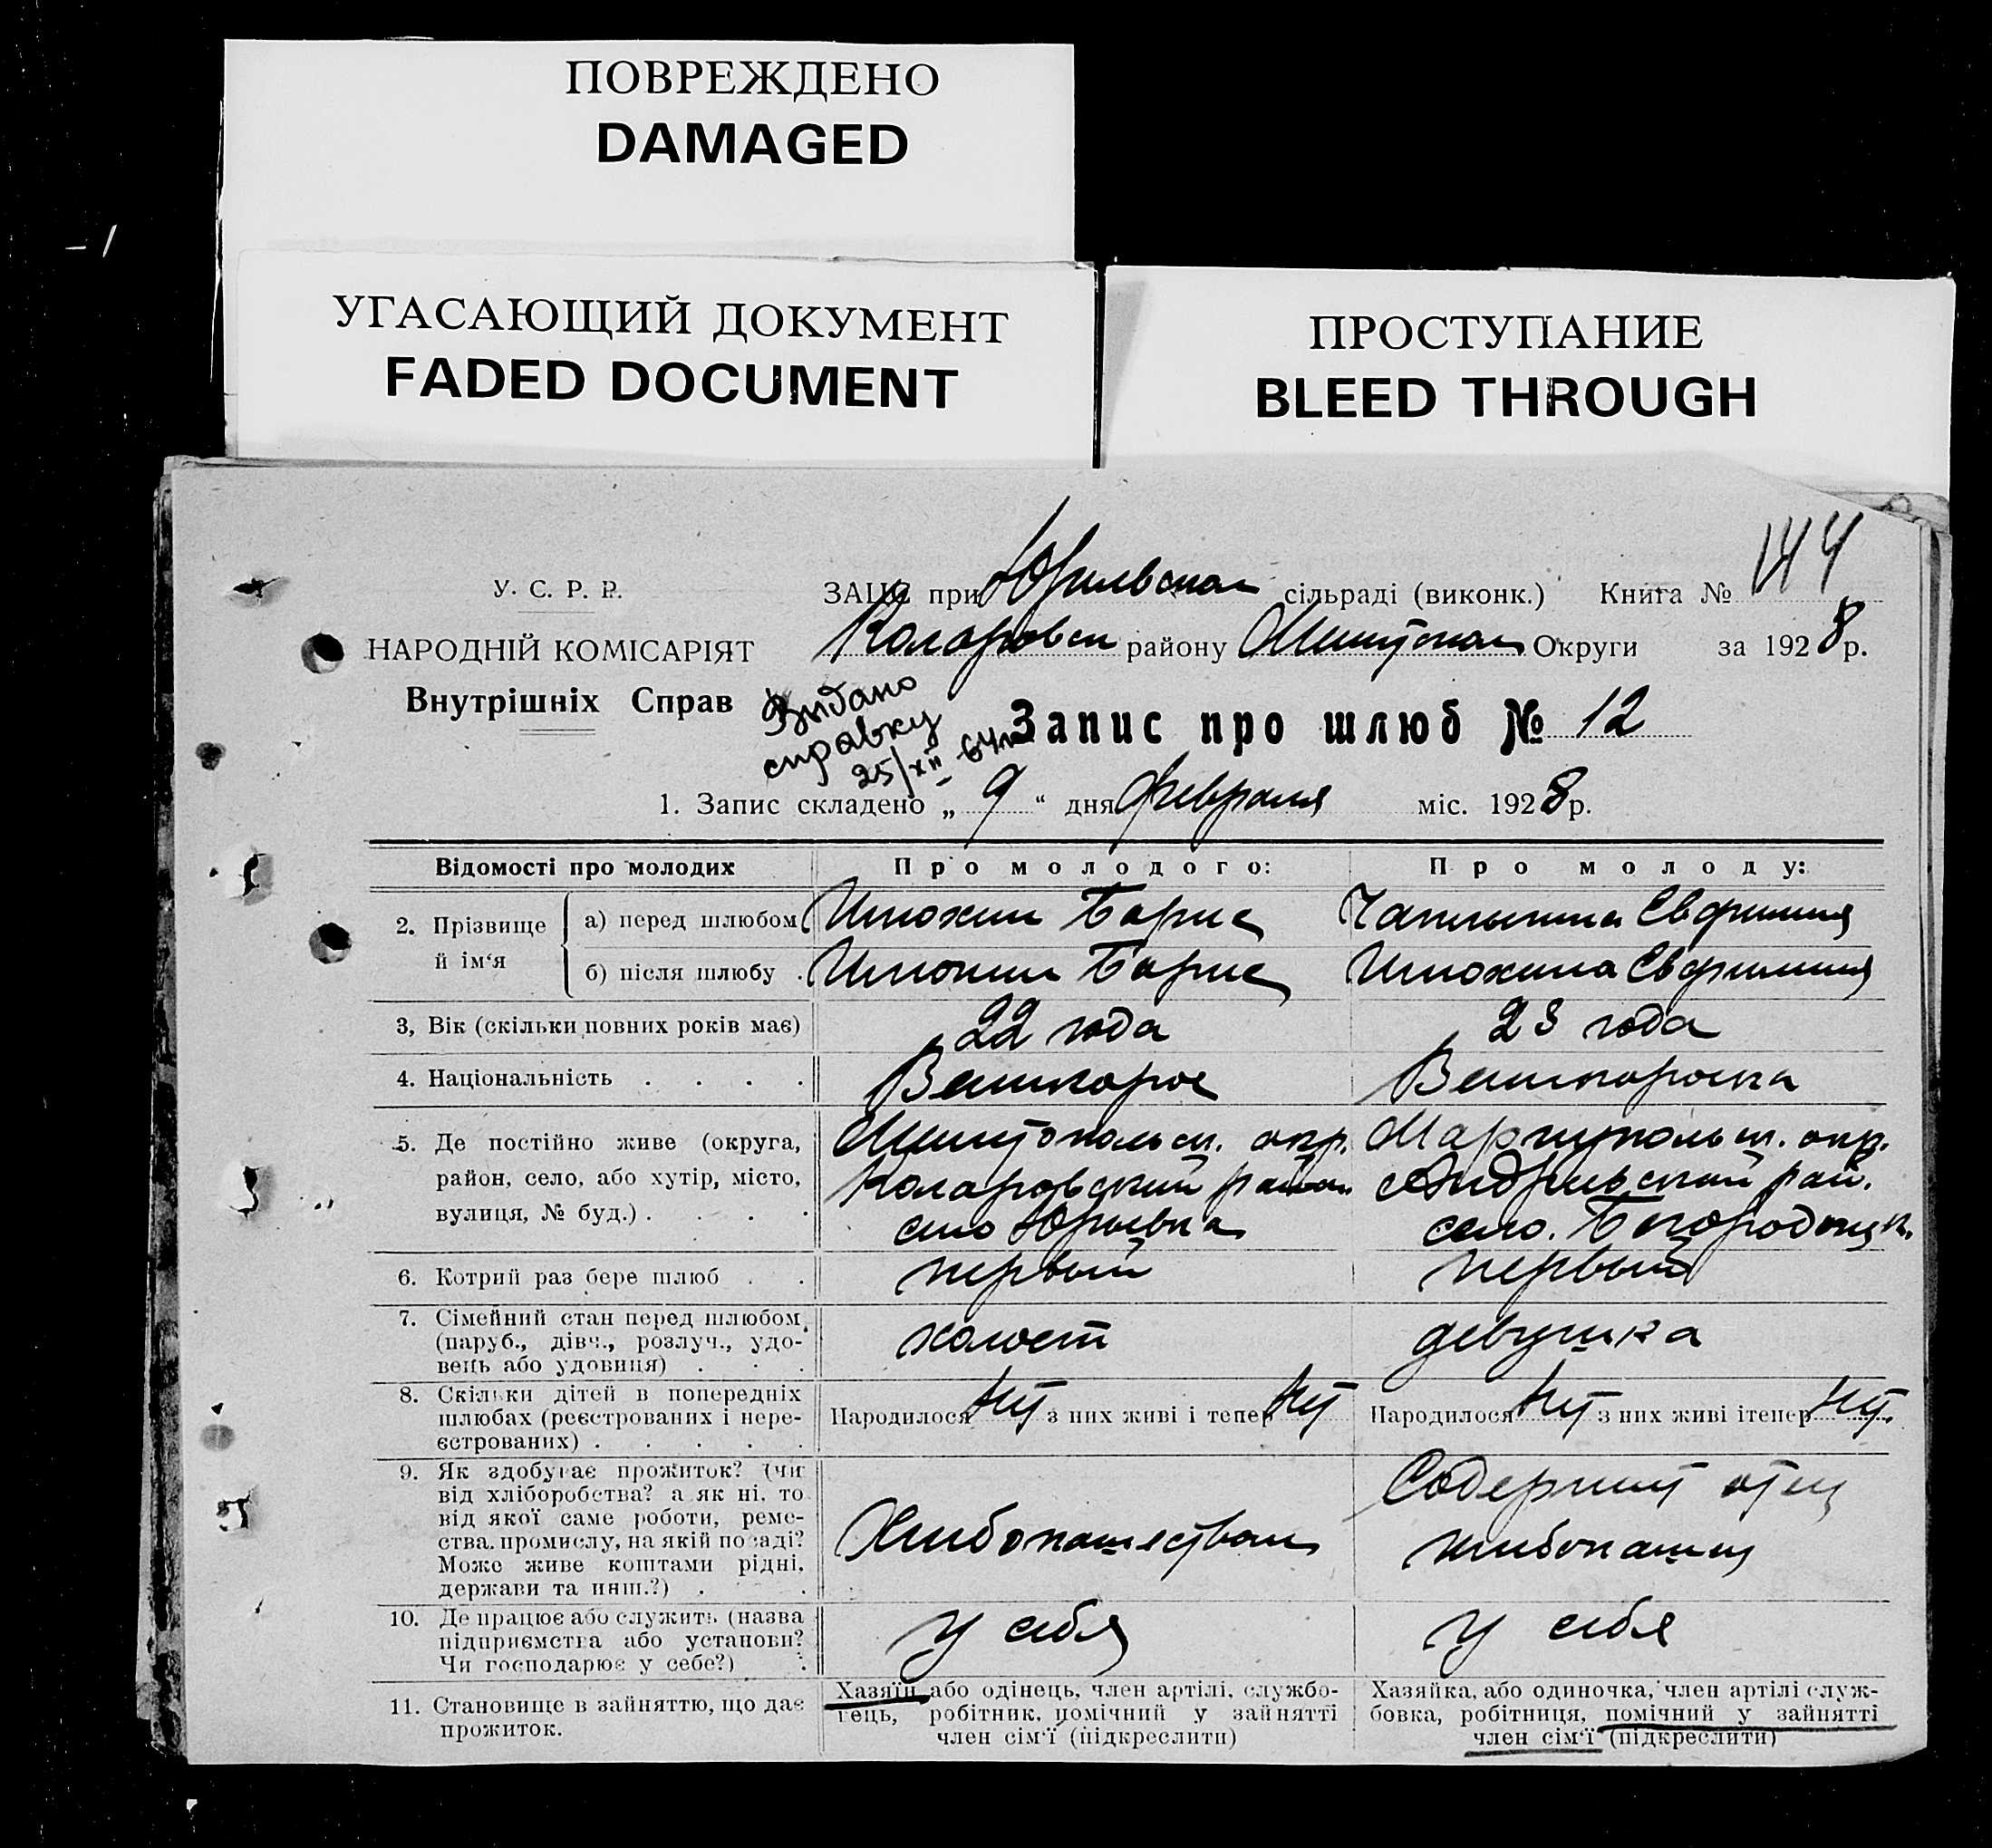 ПОВРЕЖДЕНО
DAMAGED
УГАСАЮЩИЙ ДОКУМЕНТ
FADED DOCUMENT
ПРОСТУПАНИЕ
BLEED THROUGH
У. С. Р. Р.
НАРОДНІЙ КОМІСАРІЯТ
Внутрішніх Справ
ЗАЦС при сільраді (виконк.) Книга № 144
району Округи за 1928 р.
Видано
справку
25/XII 64
Запис про шлюб № 12
1. Запис складено „ 9 “ дня февраля міс. 1928 р.
Відомості про молодих
Про молодого:
Про молоду:
2. Прізвище й ім'я
а) перед шлюбом
Борис
б) після шлюбу .
Борис
3, Вік (скільки повних років має)
22 года
23 года
4. Національність . . . .
5. Де постійно живе (округа,
район, село, або хутір, місто,
вулиця, № буд.) . . . .
окр.
Коларовский район
село Юрьевка
Мариупольск. окр.
рай.
село.
6. Котрий раз бере шлюб . .
первый
первый
7. Сімейний стан перед шлюбом,
(паруб., дівч., розлуч., удо-
вець або удовиця) . . .
холост
девушка
8. Скільки дітей в попередніх
шлюбах (реєстрованих і нере-
єстрованих) . . . . .
Народилося нет з них живі і тепер нет
Народилося нет з них живі ітепер нет.
9. Як здобуває прожиток? (чи
від хліборобства? а як ні, то
від якої саме роботи, реме-
ства, промислу, на якій посаді?
Може живе коштами рідні,
держави та инш.?) . .
Хлебопашеством
Содержит отец
хлебопашец
10. Де працює або служить (назва
підприємства або установи?
Чи господарює у себе?) .
у себя
у себя
11. Становище в зайняттю, що дає
прожиток.
Хазяїн, або одінець, член артілі, службо-
вець, робітник, помічний у зайнятті
член сім'ї (підкреслити)
Хазяйка, або одиночка, член артілі служ-
бовка, робітниця, помічний у зайнятті
член сім'ї (підкреслити)